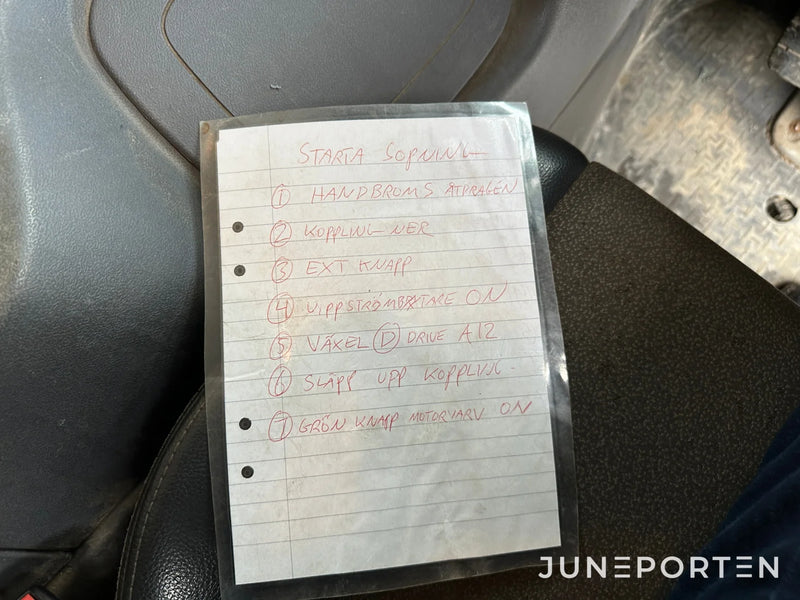 STARTA SOPNING
① HANDBROMS ÅTDRAGEN
② KOPPLING NER
③ EXT KNAPP
④ VIPPSTRÖMBRYTARE ON
⑤ VÄXEL Ⓓ DRIVE A12
⑥ SLÄPP UPP KOPPLING
⑦ GRÖN KNAPP MOTORVARV ON
JUNEPORTEN